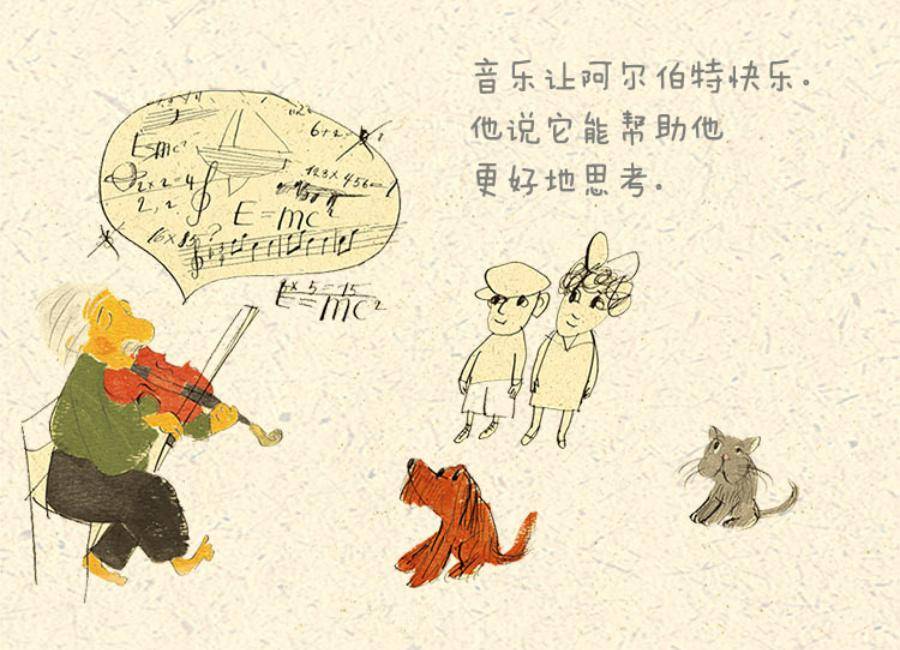 音乐让阿尔伯特快乐。
他说它能帮助他
更好地思考。
6+2
Emc²
2×2=4
2,2
123×456=
E=mc²
16×85?
6× 5=15
E=mc²